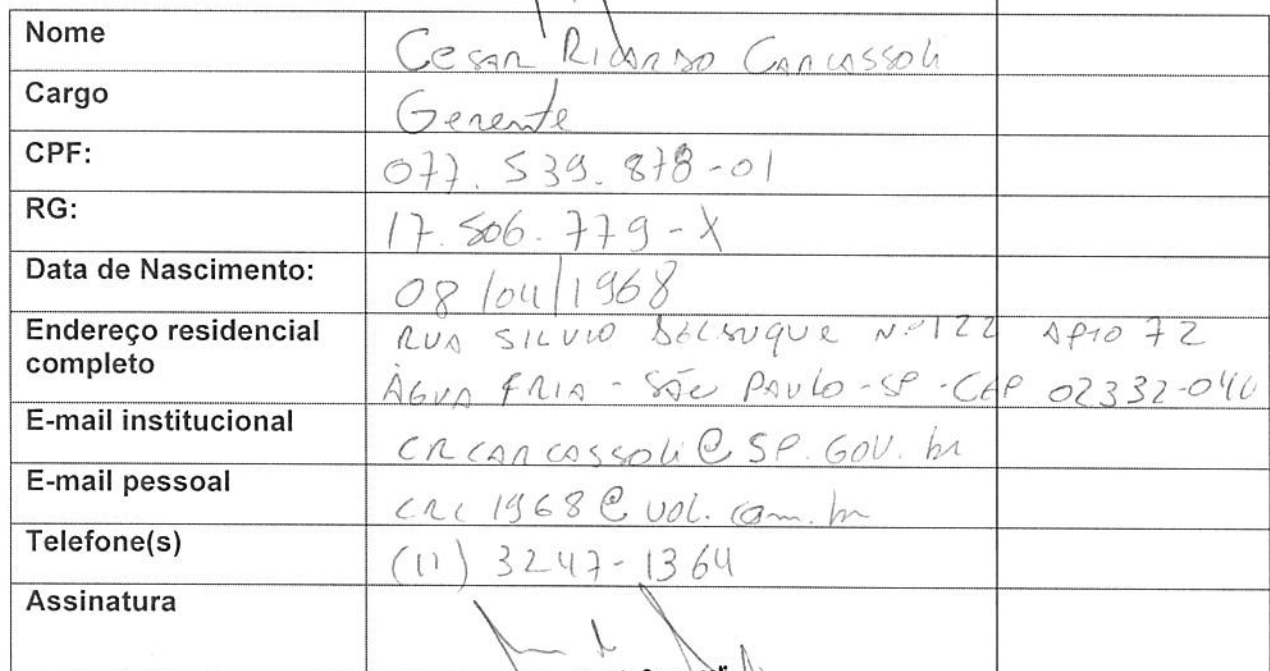 Nome Cesar Ricardo Carcassoli
Cargo Gerente
CPF: 077.539.878-01
RG: 17.506.779-X
Data de Nascimento: 08/04/1968
Endereço residencial completo
RUA SILVIO DELDUQUE Nº 122 APTO 72
ÁGUA FRIA - SÃO PAULO - SP - CEP 02332-040
E-mail institucional crcarcassoli@SP.GOV.br
E-mail pessoal crc1968@uol.com.br
Telefone(s) (11) 3247-1364
Assinatura